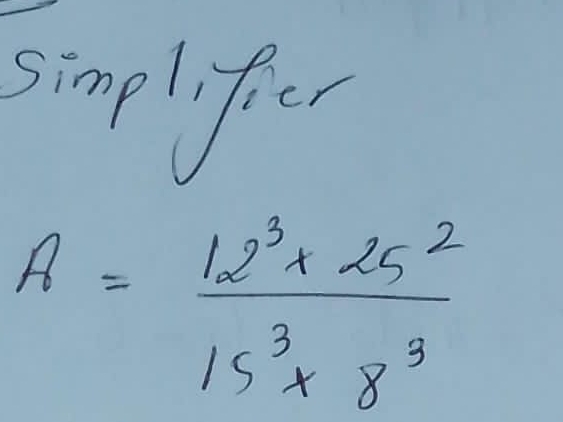 Simplifier
A = 12³ × 25²
15³ × 8³